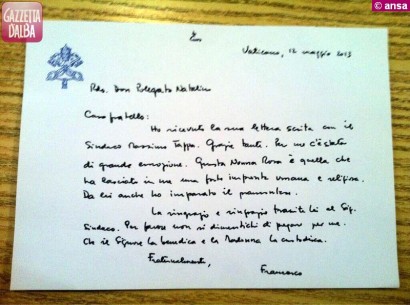 GAZZETTA
D'ALBA
© ansa
Vaticano, 12 maggio 2013
Rdo. Don Pelegato Natalino
Caro fratello:
Ho ricevuto la sua lettera scritta con il
Sindaco Massimo Tappa. Grazie tante. Per me c'è stato
di grande emozione. Questa Nonna Rosa è quella che
ha lasciato in me una forte impronta umana e religiosa.
Da lei anche ho imparato il piemontese.
La ringrazio e ringrazio tramite lei al Sig.
Sindaco. Per favore non si dimentichi di pregare per me.
Che il Signore la benedica e la Madonna la custodisca.
Fraternamente,
Francesco